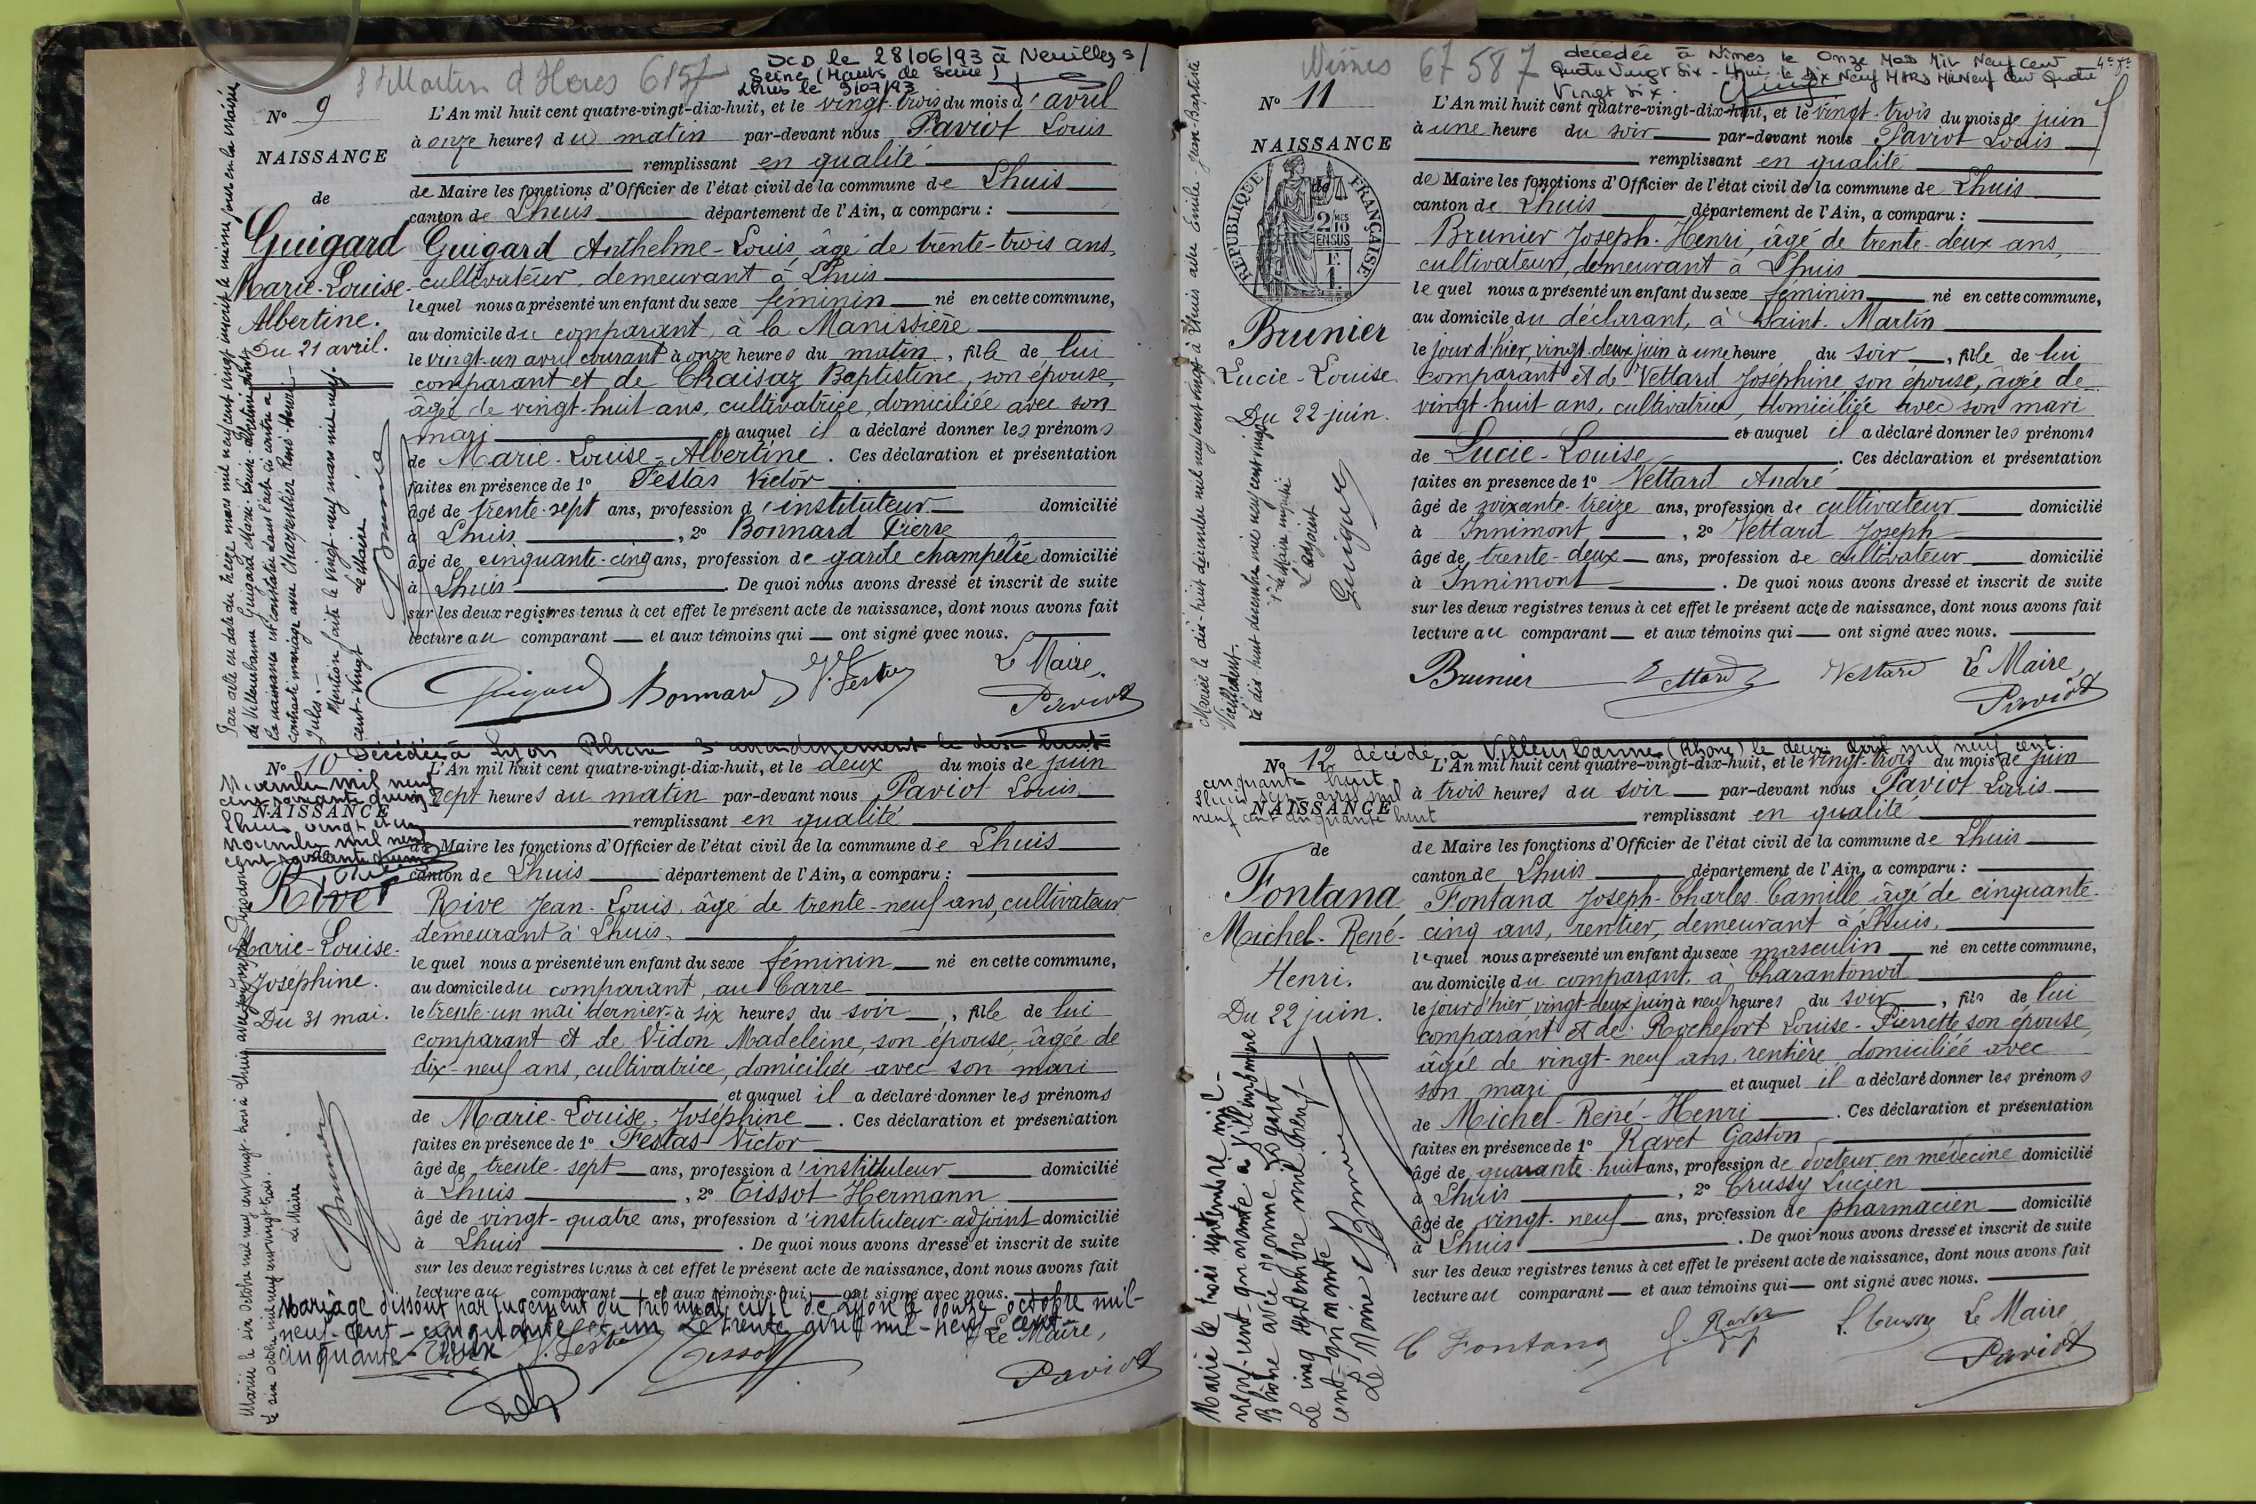 DCD le 28/06/93 à Neuilly s/
Seine (Hauts de Seine)
Lhuis le 9/07/93
St Martin d'Heres 6157
N° 9
NAISSANCE
de
Guigard
Marie-Louise-
Albertine.
Du 21 avril.
L'An mil huit cent quatre-vingt-dix-huit, et le vingt-trois du mois d'avril
à onze heures du matin par-devant nous Paviot Louis
remplissant en qualité
de Maire les fonctions d'Officier de l'état civil de la commune de Lhuis
canton de Lhuis département de l'Ain, a comparu :
Guigard Anthelme-Louis, âgé de trente-trois ans,
cultivateur, demeurant à Lhuis
lequel nous a présenté un enfant du sexe féminin né en cette commune,
au domicile du comparant, à la Manissière
le vingt-un avril courant à onze heures du matin, fille de lui
comparant et de Chaisaz Baptistine, son épouse,
âgée de vingt-huit ans, cultivatrice, domiciliée avec son
mari et auquel il a déclaré donner les prénoms
de Marie-Louise-Albertine. Ces déclaration et présentation
faites en présence de 1° Festas Victor
âgé de trente-sept ans, profession d'instituteur domicilié
à Lhuis, 2° Bonnard Pierre
âgé de cinquante-cinq ans, profession de garde champêtre domicilié
à Lhuis. De quoi nous avons dressé et inscrit de suite
sur les deux registres tenus à cet effet le présent acte de naissance, dont nous avons fait
lecture au comparant et aux témoins qui ont signé avec nous.
Guigard Bonnard V. Festas Le Maire,
Paviot
Par acte en date du treize mars mil neuf cent vingt inscrit le même jour en la mairie
de Villeurbanne Guigard Marie-Louise-Albertine dont
la naissance est constatée dans l'acte ci-contre a
contracté mariage avec Charpentier René Henri
Jules.-
Mention faite le vingt-neuf mars mil neuf
cent-vingt
Le Maire
Brunier
Décédée à Lyon Rhône 3e arrondissement le dix huit
Novembre mil neuf
cent soixante quinze
Lhuis vingt et un
novembre mil neuf
cent soixante quinze
N° 10
NAISSANCE
de
Rive
Marie-Louise-
Joséphine.
Du 31 mai.
L'An mil huit cent quatre-vingt-dix-huit, et le deux du mois de juin
à sept heures du matin par-devant nous Paviot Louis
remplissant en qualité
de Maire les fonctions d'Officier de l'état civil de la commune de Lhuis
canton de Lhuis département de l'Ain, a comparu :
Rive Jean-Louis, âgé de trente-neuf ans, cultivateur
demeurant à Lhuis,
lequel nous a présenté un enfant du sexe féminin né en cette commune,
au domicile du comparant, au Carre
le trente-un mai dernier à six heures du soir, fille de lui
comparant et de Vidon Madeleine, son épouse, âgée de
dix-neuf ans, cultivatrice, domiciliée avec son mari
et auquel il a déclaré donner les prénoms
de Marie-Louise-Joséphine. Ces déclaration et présentation
faites en présence de 1° Festas Victor
âgé de trente-sept ans, profession d'instituteur domicilié
à Lhuis, 2° Tissot Hermann
âgé de vingt-quatre ans, profession d'instituteur-adjoint domicilié
à Lhuis. De quoi nous avons dressé et inscrit de suite
sur les deux registres tenus à cet effet le présent acte de naissance, dont nous avons fait
lecture au comparant et aux témoins qui ont signé avec nous.
Mariage dissout par jugement du tribunal civil de Lyon le douze octobre mil-
neuf-cent-cinquante et un Le trente avril mil-neuf-cent-
cinquante-deux
V. Festas Tissot Le Maire,
Paviot
Marié le six octobre mil neuf cent vingt trois à Lhuis avec
le six octobre mil neuf cent vingt trois.
Le Maire
Brunier
Nîmes 67 587
decedée à Nîmes le Onze Mars Mil Neuf Cent
Quatre Vingt Six - Lhuis le Dix Neuf Mars Mil Neuf Cent Quatre
Vingt Six.
N° 11
NAISSANCE
de
RÉPUBLIQUE FRANÇAISE
2/10 MES
EN SUS
Brunier
Lucie-Louise
Du 22 juin.
L'An mil huit cent quatre-vingt-dix-huit, et le vingt-trois du mois de juin
à une heure du soir par-devant nous Paviot Louis
remplissant en qualité
de Maire les fonctions d'Officier de l'état civil de la commune de Lhuis
canton de Lhuis département de l'Ain, a comparu :
Brunier Joseph-Henri, âgé de trente-deux ans,
cultivateur, demeurant à Lhuis
lequel nous a présenté un enfant du sexe féminin né en cette commune,
au domicile du déclarant, à Saint-Martin
le jour d'hier, vingt-deux juin à une heure du soir, fille de lui
comparant et de Vettard Joséphine, son épouse, âgée de
vingt-huit ans, cultivatrice, domiciliée avec son mari
et auquel il a déclaré donner les prénoms
de Lucie-Louise. Ces déclaration et présentation
faites en présence de 1° Vettard André
âgé de soixante-treize ans, profession de cultivateur domicilié
à Innimont, 2° Vettard Joseph
âgé de trente-deux ans, profession de cultivateur domicilié
à Innimont. De quoi nous avons dressé et inscrit de suite
sur les deux registres tenus à cet effet le présent acte de naissance, dont nous avons fait
lecture au comparant et aux témoins qui ont signé avec nous.
Brunier Vettard Vettard Le Maire,
Paviot
Mariée le dix-huit décembre mil neuf cent vingt à Lhuis avec Emile-Jean-Baptiste
le dix huit décembre mil neuf cent vingt
Pr le Maire empêché
L'adjoint
Guigard
décédé à Villeurbanne (Rhône) le deux avril mil neuf cent
cinquante huit
neuf cent cinquante huit
N° 12
NAISSANCE
de
Fontana
Michel-René-
Henri.
Du 22 juin.
L'An mil huit cent quatre-vingt-dix-huit, et le vingt-trois du mois de juin
à trois heures du soir par-devant nous Paviot Louis
remplissant en qualité
de Maire les fonctions d'Officier de l'état civil de la commune de Lhuis
canton de Lhuis département de l'Ain, a comparu :
Fontana Joseph-Charles-Camille âgé de cinquante-
cinq ans, rentier, demeurant à Lhuis,
lequel nous a présenté un enfant du sexe masculin né en cette commune,
au domicile du comparant, à Charantonod
le jour d'hier vingt-deux juin à neuf heures du soir, fils de lui
comparant et de Rochefort Louise-Pierrette, son épouse,
âgée de vingt-neuf ans, rentière, domiciliée avec
son mari et auquel il a déclaré donner les prénoms
de Michel-René-Henri. Ces déclaration et présentation
faites en présence de 1° Ravet Gaston
âgé de quarante-huit ans, profession de docteur en médecine domicilié
à Lhuis, 2° Crussy Lucien
âgé de vingt-neuf ans, profession de pharmacien domicilié
à Lhuis. De quoi nous avons dressé et inscrit de suite
sur les deux registres tenus à cet effet le présent acte de naissance, dont nous avons fait
lecture au comparant et aux témoins qui ont signé avec nous.
C Fontana G. Ravet L. Crussy Le Maire
Paviot
Marié le trois septembre mil-
neuf-cent-quarante à Villeurbanne
Rhône avec Yvonne
Le cinq septembre mil neuf-
cent-quarante
Le Maire Brunier